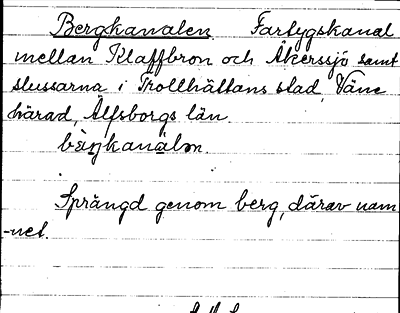 Bergkanalen Fartygskanal
mellan Klaffbron och Åkerssjö samt
slussarna i Trollhättans stad, Väne
härad, Älfsborgs län.
bærjkanàlən.
Sprängd genom berg, därav nam-
-net.